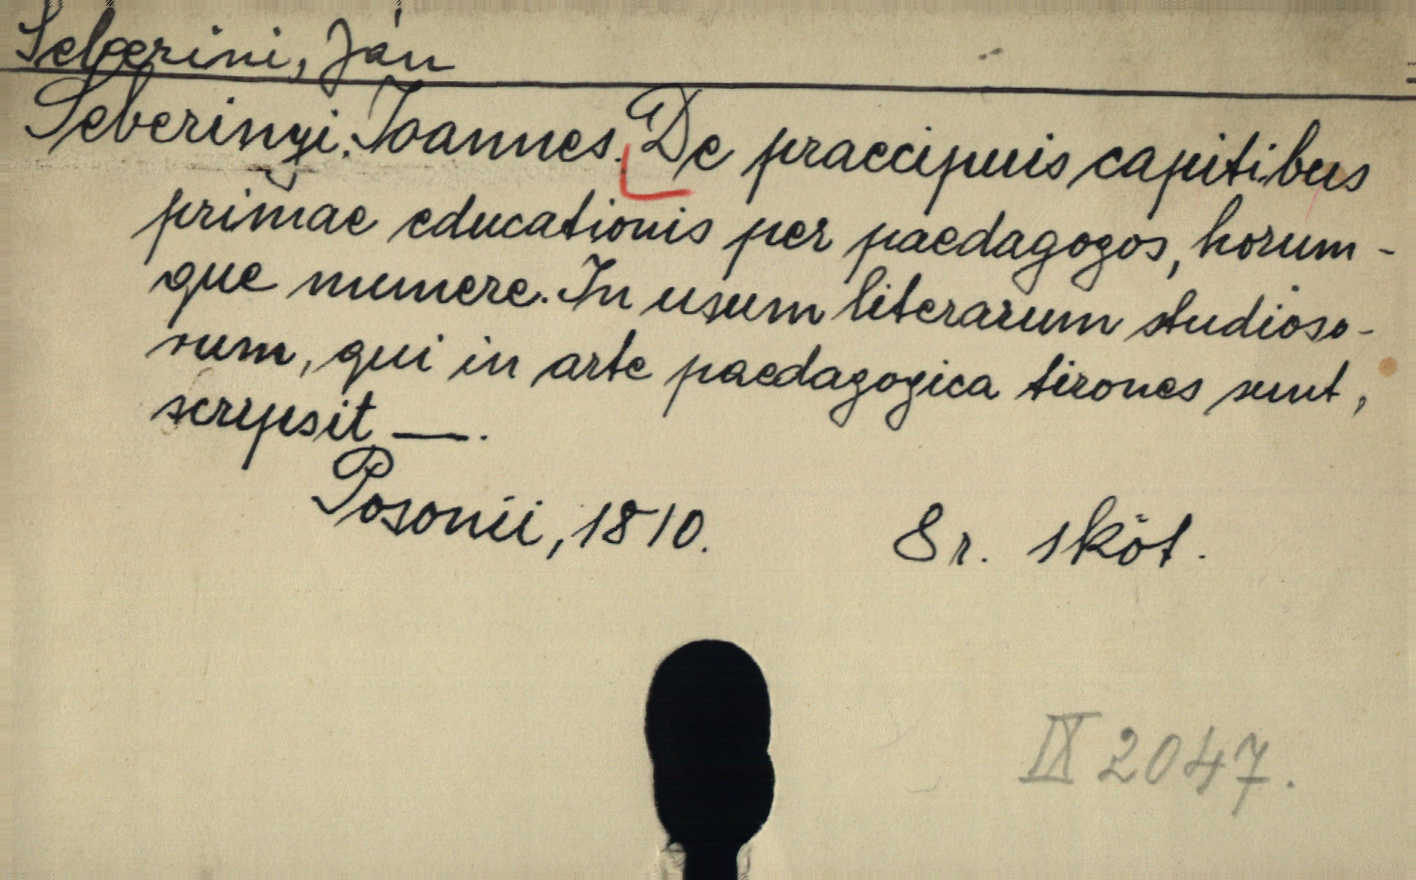 Seberini, Ján
Seberinyi, Ioannes. De praecipuis capitibus
primae educationis per paedagogos, horum-
que munere. In usum literarum studioso-
rum, qui in arte paedagogica tirones sunt,
scripsit —.
Posonii, 1810. 8r. sköt.
IX 2047.